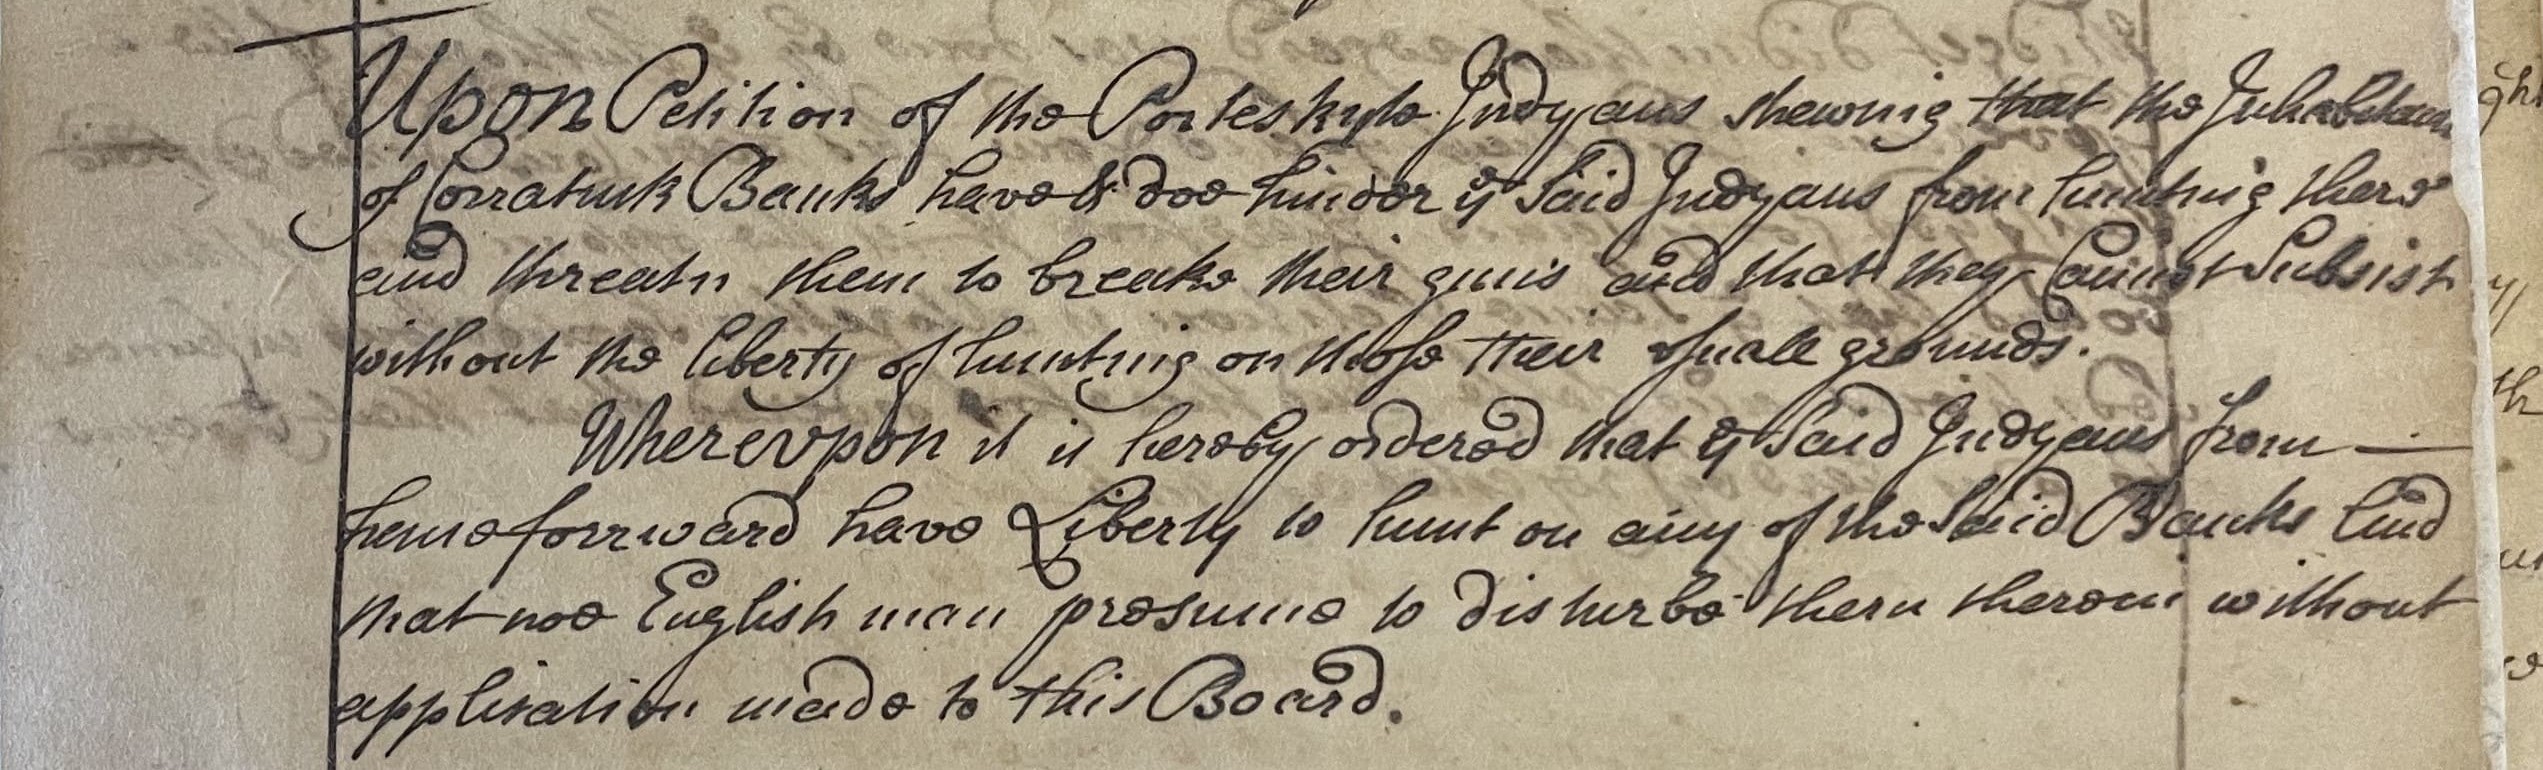 Upon Petition of the Porteskyte Indyans shewing that the Inhabitan
of Corratuck Banks have & doe hinder yᵉ Said Indyans from hunting there
and threatn them to breake their guns and that they Cannot Subsist
without the liberty of hunting on those their usuall grounds.
Wherevpon it is hereby ordered that yᵉ Said Indyans from —
henceforrward have Liberty to hunt on any of the Said Banks And
that noe English man presume to disturbe them therein without
application made to this Board.